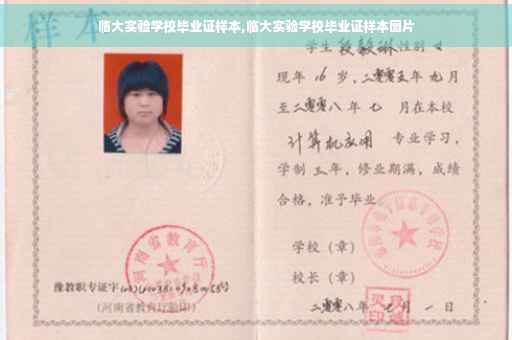 临大实验学校毕业证样本,临大实验学校毕业证样本图片
样本
学生 段毅琳 性别 女
现年 16 岁,二零零五年 九 月
至二零零八年 七 月在本校
计算机应用 专业学习,
学制 三 年,修业期满,成绩
合格,准予毕业
学校(章)
校长(章)
二零零八年 月 一 日
河南省教育厅
豫教职专证字
(河南省教育厅验印)